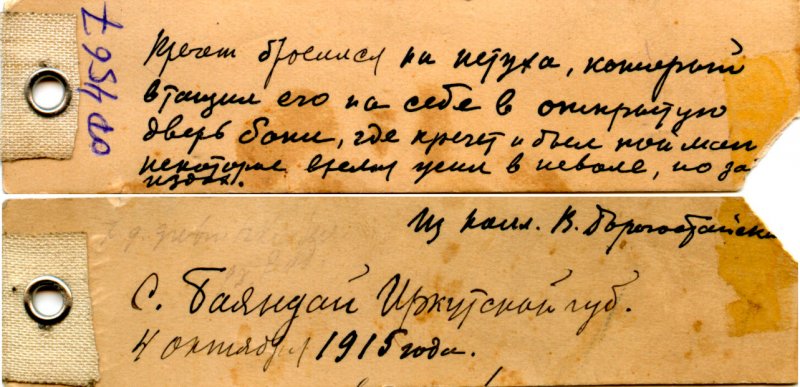 Кречет бросился на петуха, который
втащил его на себе в открытую
дверь бани, где кречет и был пойман
некоторое время жил в неволе, но за
издох.
Из колл. В. Дорогостайск
С. Баяндай Иркутской губ.
4 октября 1915 года.